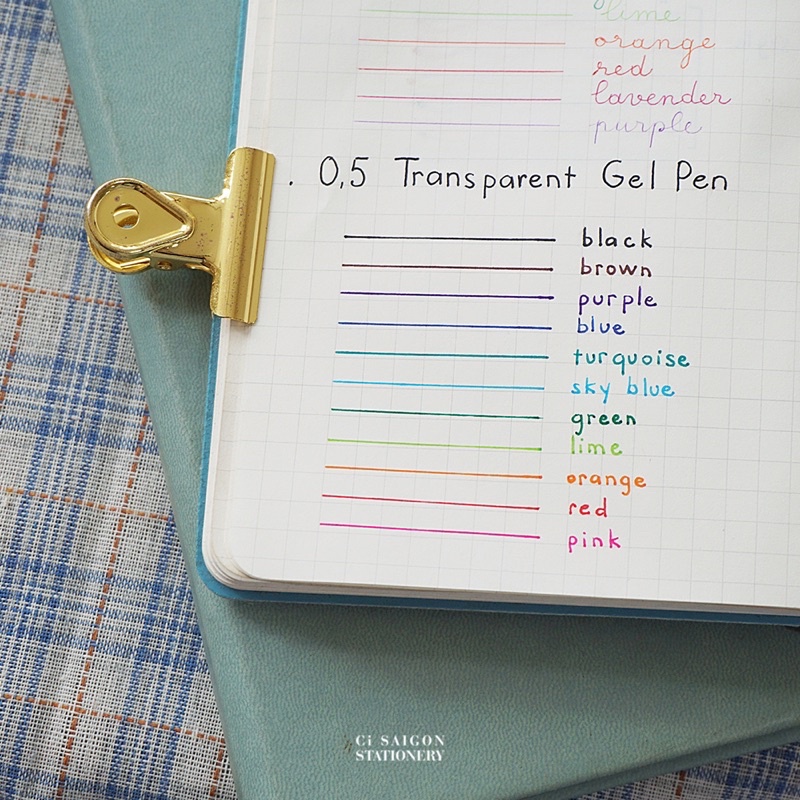 lime
orange
red
lavender
purple
. 0,5 Transparent Gel Pen
black
brown
purple
blue
turquoise
sky blue
green
lime
orange
red
pink
Ci SAIGON
STATIONERY